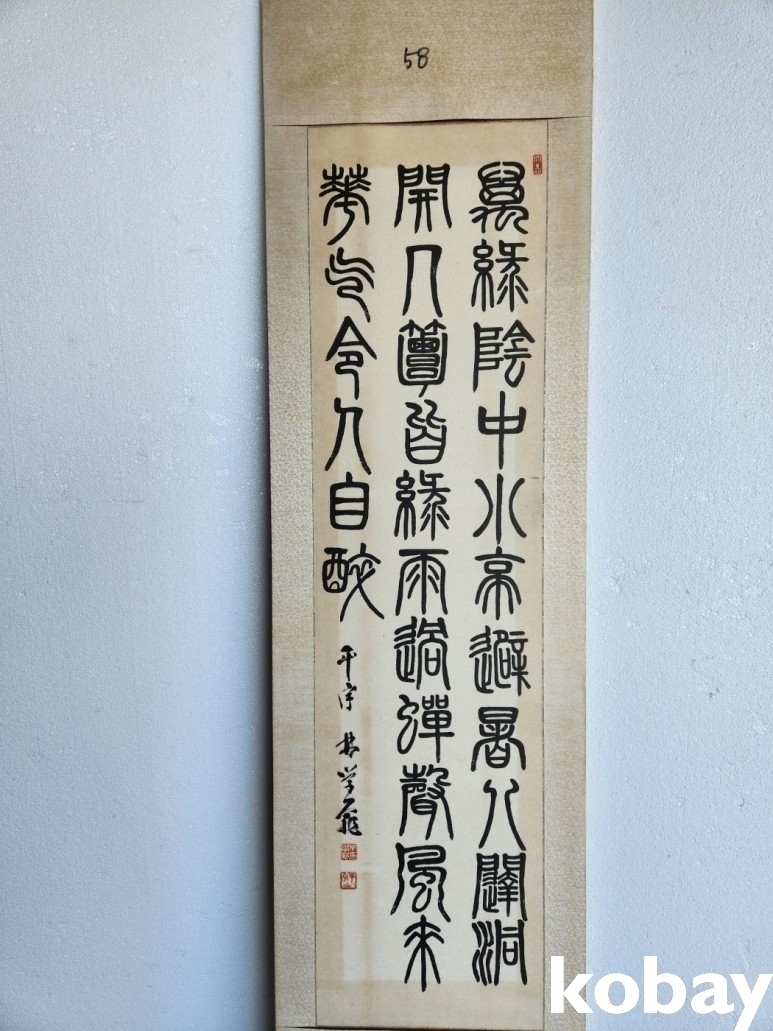 58
萬綠陰中小亭避暑八闥洞
開几簟皆綠雨過蟬聲風來
華气令人自醉
kobay